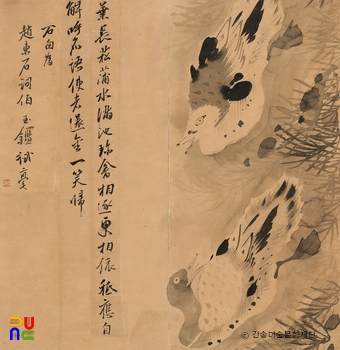 葉長菰蒲水滿池珍禽相逐更相依秖應自
解呼名語使去還金一笑歸
石白為
趙東石詞伯玉鑑 試毫
ⓒ 간송미술문화재단